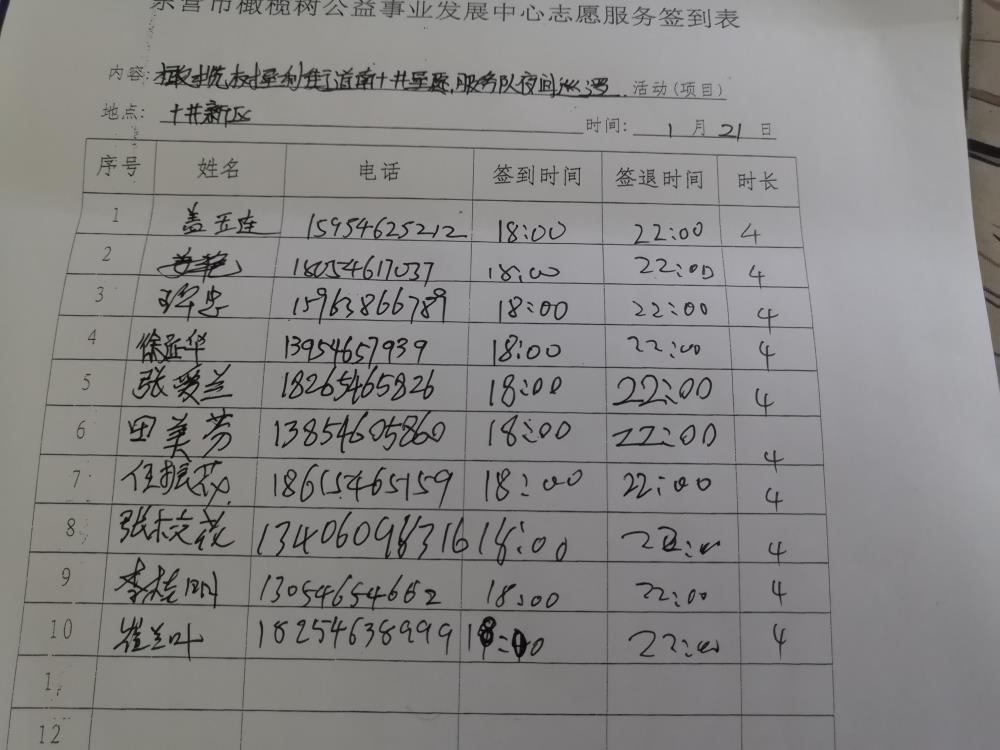 东营市橄榄树公益事业发展中心志愿服务签到表
内容: 橄榄树垦利街道南十井 服务队夜间巡逻 活动(项目)
地点: 十井新区 时间: 1 月 21 日
序号 姓名 电话 签到时间 签退时间 时长
1 盖玉连 15954625212 18:00 22:00 4
2 18054617037 18:00 22:00 4
3 15963866789 18:00 22:00 4
4 徐延华 13954657939 18:00 22:00 4
5 张爱兰 18265465826 18:00 22:00 4
6 田美芳 13854605860 18:00 22:00 4
7 任振花 18615465159 18:00 22:00 4
8 18:00 22:00 4
9 李桂 13054654662 18:00 22:00 4
10 崔兰叶 18254638999 22:00 4
12